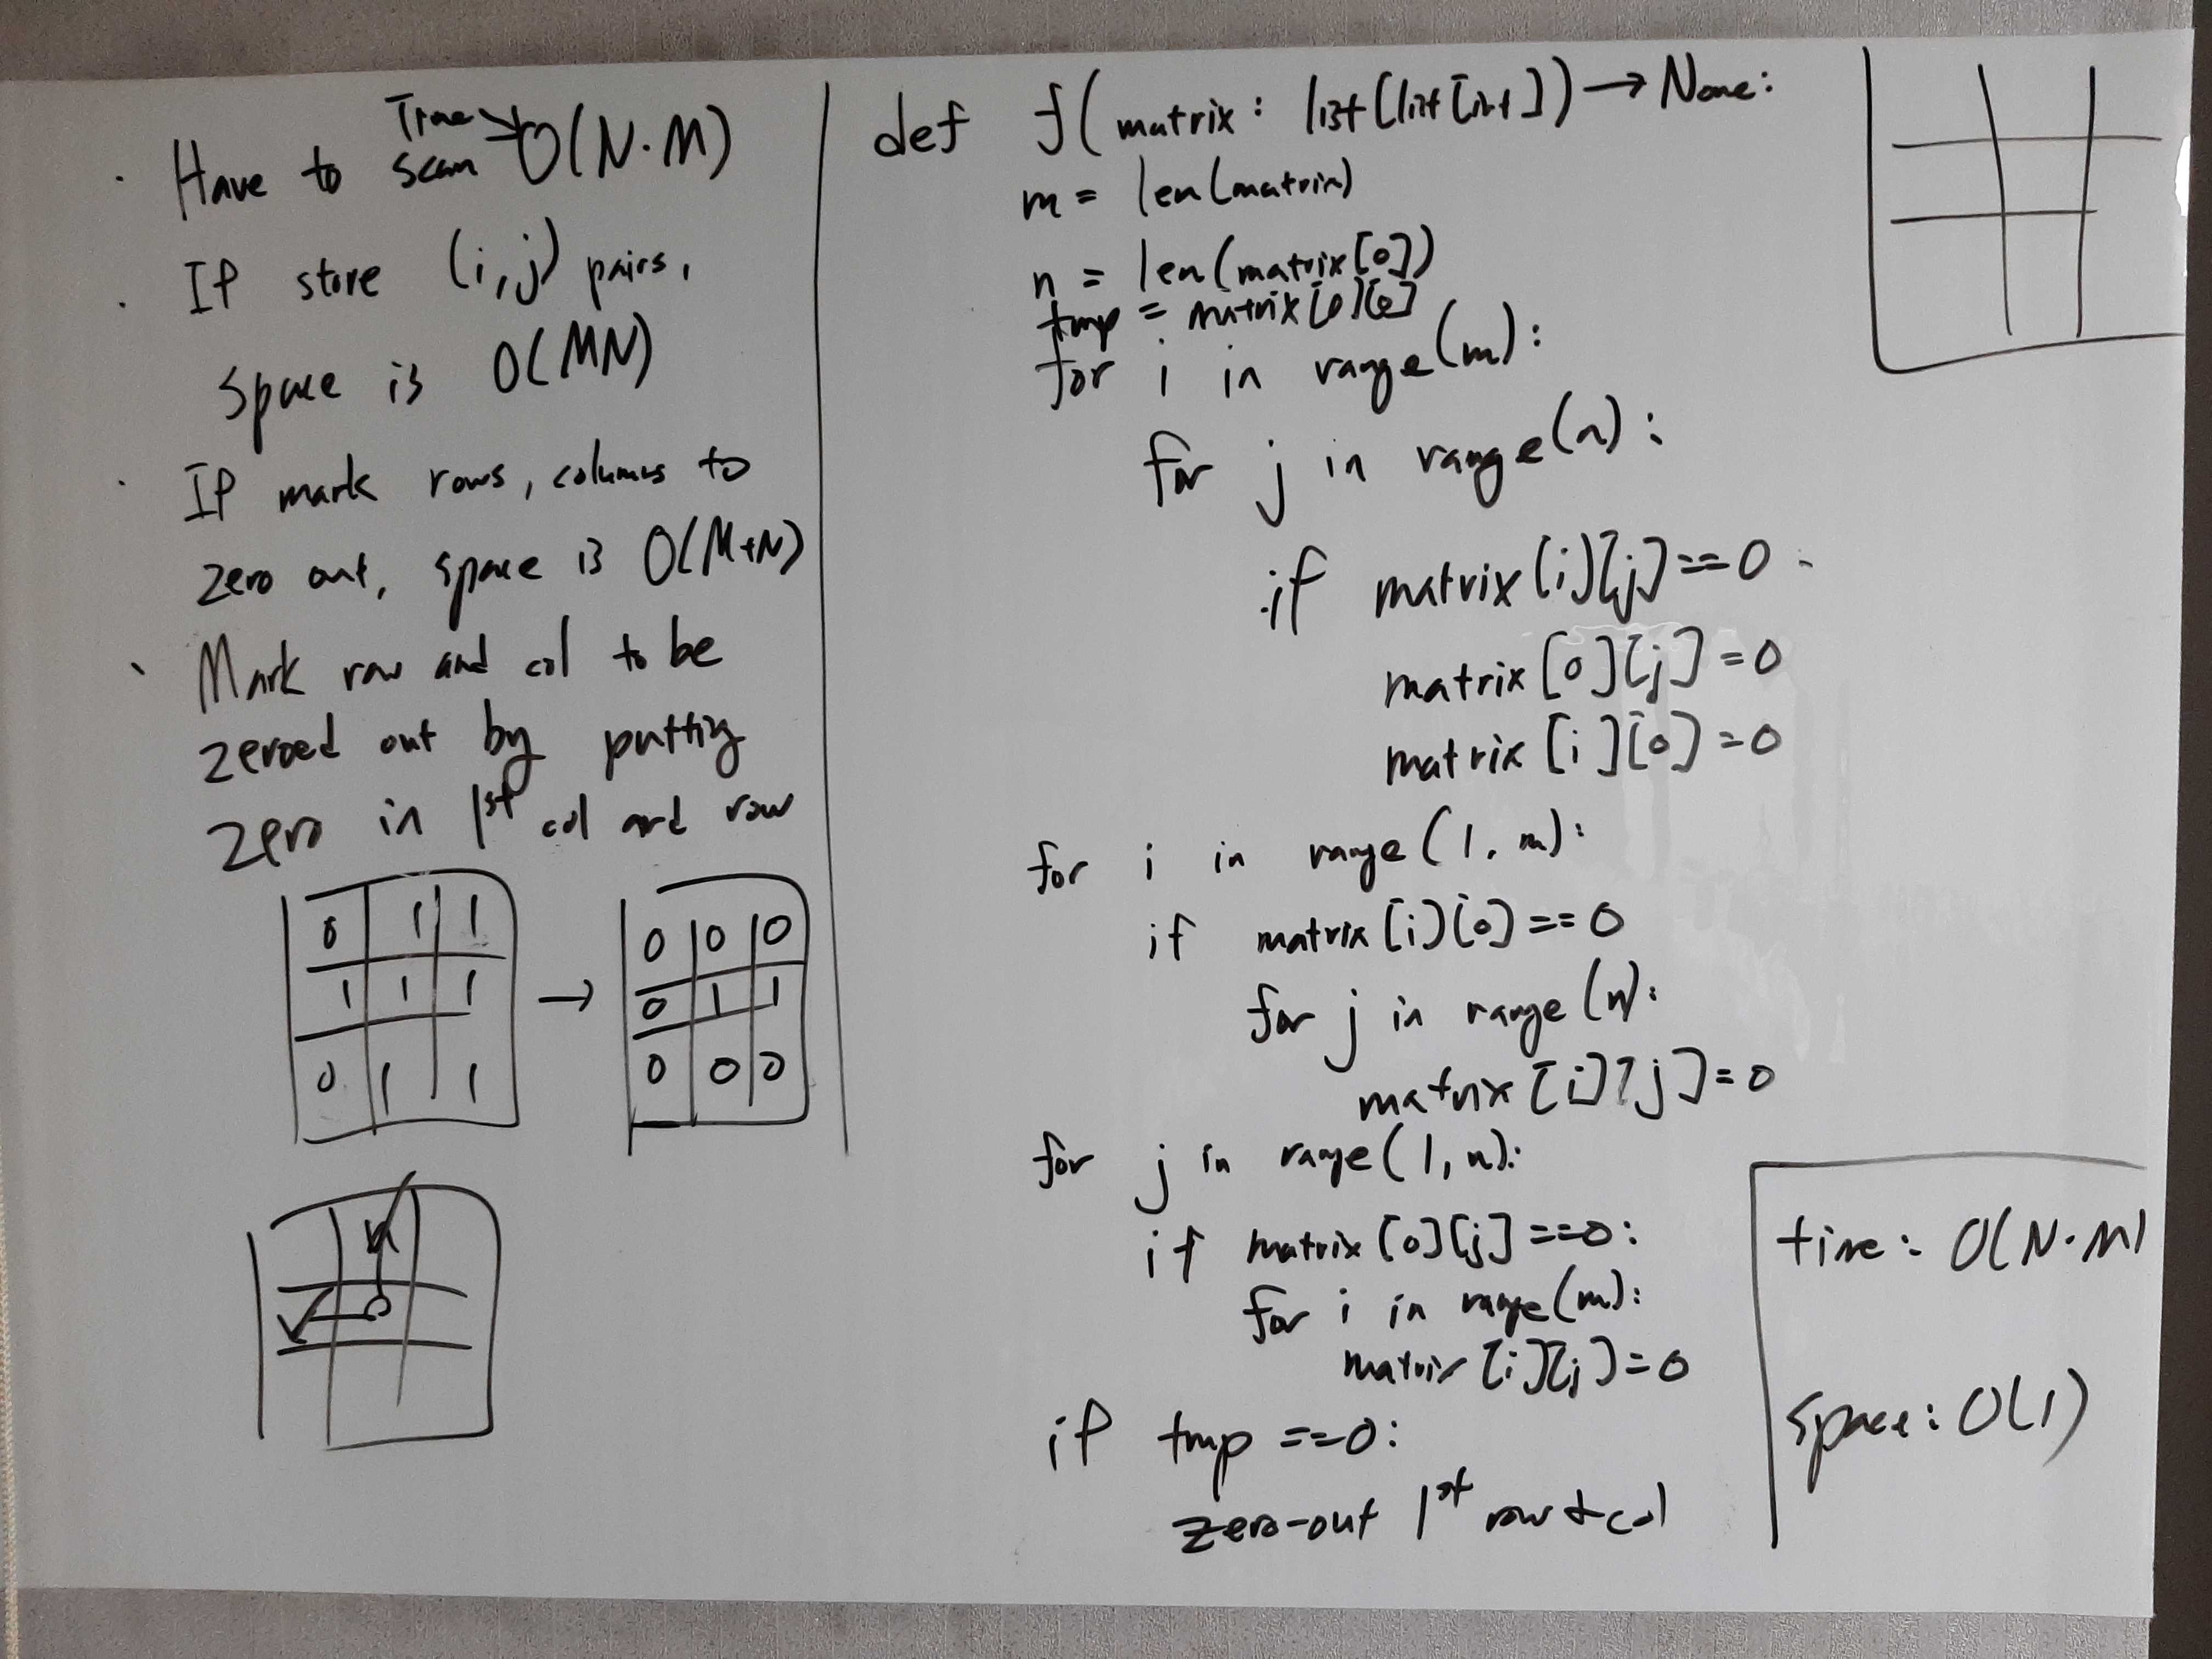 Time
· Have to scan → O(N·M)
· If store (i,j) pairs,
space is O(MN)
· If mark rows, columns to
zero out, space is O(M+N)
· Mark row and col to be
zeroed out by putting
zero in 1st col and row
0 1 1
1 1 1
0 1 1
→
0 0 0
0 1 1
0 0 0
def f(matrix: list[list[int]) → None:
m = len(matrix)
n = len(matrix[0])
tmp = matrix[0][0]
for i in range(m):
for j in range(n):
if matrix[i][j]==0
matrix[0][j]=0
matrix[i][0]=0
for i in range(1, m):
if matrix[i][0]==0
for j in range(n):
matrix[i][j]=0
for j in range(1,n):
if matrix[0][j]==0:
for i in range(m):
matrix[i][j]=0
if tmp ==0:
zero-out 1st row & col
time: O(N·M)
space: O(1)